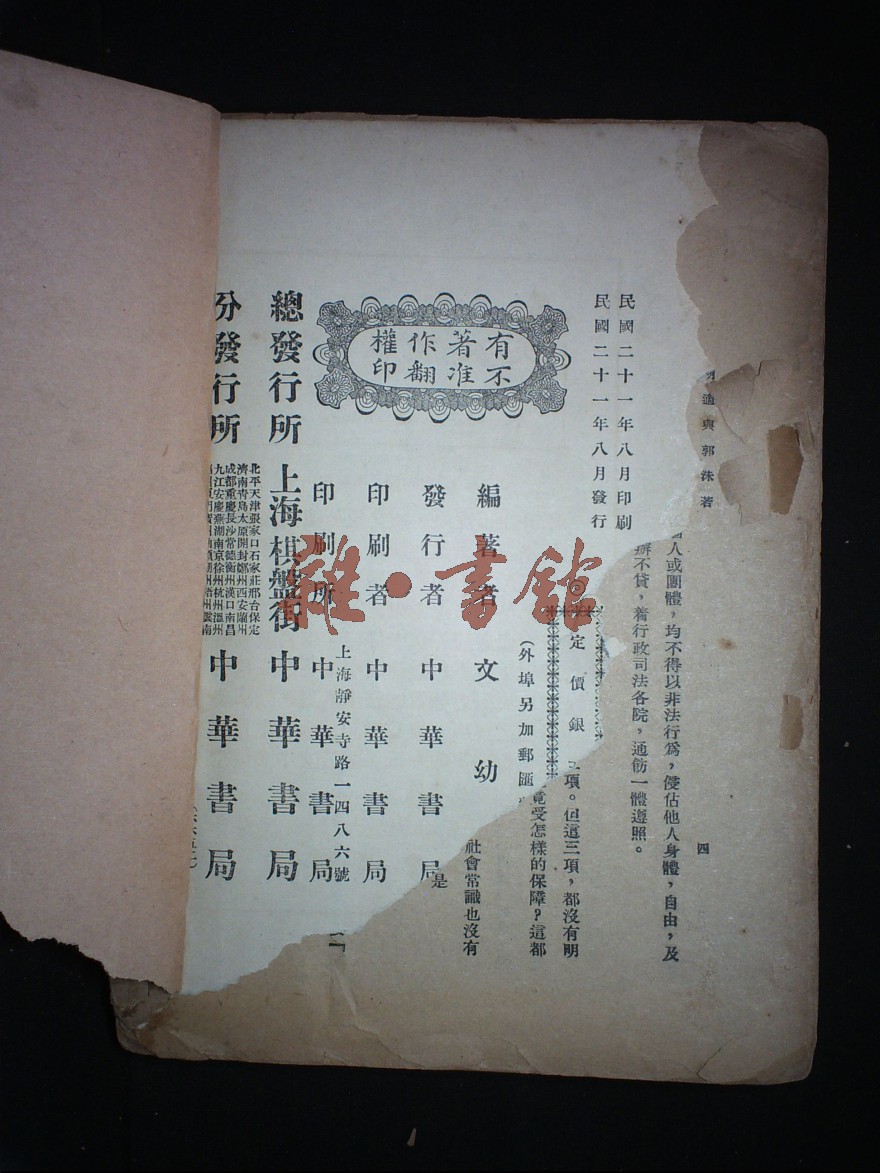 民國二十一年八月印刷
民國二十一年八月發行
有著作權
不准翻印
定價銀
(外埠另加郵匯
編著者 文幼
發行者 中華書局
印刷者 中華書局
印刷所 中華書局
上海靜安寺路一四八六號
總發行所 上海棋盤街 中華書局
分發行所 中華書局
北平天津張家口石家莊邢台保定
濟南青島太原開封鄭州西安蘭州
成都重慶長沙常德衡州漢口南昌
九江安慶蕪湖南京徐州杭州溫州
適與郭沫著
四
人或團體,均不得以非法行爲,侵佔他人身體,自由,及
辦不貸,着行政司法各院,通飭一體遵照。
項。但這三項,都沒有明
竟受怎樣的保障?這都
社會常識也沒有
是
雜·書館